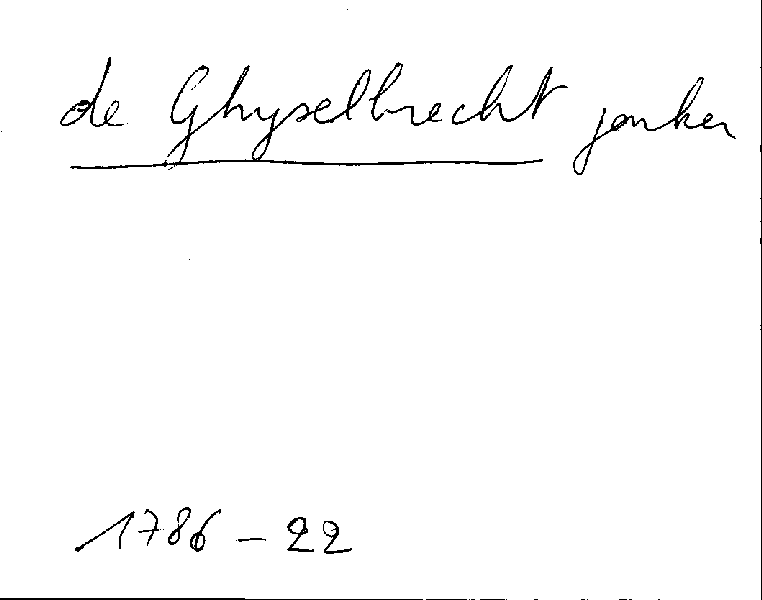 de Ghyselbrecht jonker
1786 - 22